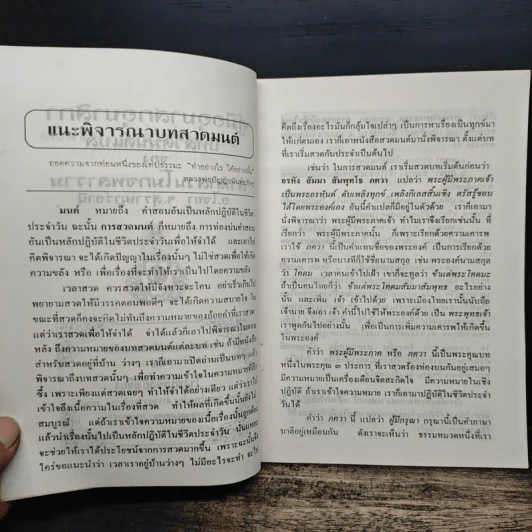 แนะพิจารณาบทสวดมนต์
ถอดความจากท่อนหนึ่งของเทปธรรมะ "ทำอย่างไร ได้อย่างนั้น"
หลวงพ่อปัญญานันทภิกขุ
มนต์ หมายถึง คำสอนอันเป็นหลักปฏิบัติในชีวิต
ประจำวัน ฉะนั้น การสวดมนต์ ก็หมายถึง การท่องบ่นคำสอน
อันเป็นหลักปฏิบัติในชีวิตประจำวันเพื่อให้จำได้ และเอาไป
คิดพิจารณา จะได้เกิดปัญญาในเรื่องนั้นๆ ไม่ใช่สวดเพื่อให้เกิด
ความขลัง หรือ เพื่อเรื่องที่จะทำให้เราเป็นไปโดยความขลัง
เวลาสวด ควรสวดให้มีจังหวะจะโคน อย่าเร็วเกินไป
พยายามสวดให้มีวรรคตอนพอดีๆ จะได้เกิดความสบายใจ ใน
ขณะที่สวดก็คงจะคิดไม่ทันถึงความหมายของถ้อยคำที่เราสวด
แต่ว่าเราสวดเพื่อให้จำได้ จำได้แล้วก็เอาไปพิจารณาในตอน
หลัง ถึงความหมายของบทสวดมนต์แต่ละบท เช่น ถ้ามีหนังสือ
สำหรับสวดอยู่ที่บ้าน ว่างๆ เราก็เอามาเปิดอ่านเป็นบทๆ แล้ว
พิจารณาถึงบทสวดนั้นๆ เพื่อทำความเข้าใจในความหมายที่ลึก
ซึ้ง เพราะเพียงแต่สวดเฉยๆ ทำให้จำได้อย่างเดียว แต่ว่าเราไม่
เข้าใจถึงเนื้อความในเรื่องที่สวด ทำให้ผลที่เกิดขึ้นนั้นยังไม่
สมบูรณ์ แต่ถ้าเราเข้าใจความหมายของเนื้อเรื่องนั้นถูกต้อง
แล้วนำเรื่องนั้นไปเป็นหลักปฏิบัติในชีวิตประจำวัน นั่นแหละ
จะช่วยให้เราได้ประโยชน์จากการสวดมากขึ้น เพราะฉะนั้นจึง
ใคร่ขอแนะนำว่า เวลาเราอยู่บ้านว่างๆ ไม่มีอะไรจะทำ จะไป
คิดถึงเรื่องอะไรมันก็กลุ้มใจเปล่าๆ เป็นการหาเรื่องเป็นทุกข์มา
ให้แก่ตนเอง เราก็เอาหนังสือสวดมนต์มานั่งพิจารณา ตั้งแต่บท
ที่เราเริ่มสวดกันประจำเป็นต้นไป
เช่นว่า ในการสวดมนต์ เราเริ่มสวดบทเริ่มต้นก่อนว่า
อรหัง สัมมา สัมพุทโธ ภควา แปลว่า พระผู้มีพระภาคเจ้า
เป็นพระอรหันต์ ดับเพลิงทุกข์ เพลิงกิเลสสิ้นเชิง ตรัสรู้ชอบ
ได้โดยพระองค์เอง อันนี้มีคำแปลก็มีอยู่ในตัวด้วย เราก็เอามา
นั่งพิจารณาว่า พระผู้มีพระภาคเจ้า ทำไมเราจึงเรียกเช่นนั้น ที่
เรียกว่า พระผู้มีพระภาคนั้น ก็เพราะเรียกด้วยความเคารพ
เราใช้ ภควา นี้เป็นคำแทนชื่อของพระองค์ เป็นการเรียกด้วย
ความเคารพ หรือบางทีก็ใช้ชื่อนามสกุล เช่น พระองค์นามสกุล
ว่า โคดม เวลาคนเข้าไปเฝ้า เขาก็จะทูลว่า ข้าแต่พระโคดมะ
ถ้าเป็นคนไทยก็ว่า ข้าแต่พระโคดมสัมมาสัมพุทธะ อะไรอย่าง
นั้น และเพิ่ม เจ้า เข้าไปด้วย เพราะเมืองไทยเรานั้นนับถือ
เจ้านาย จึงเอา เจ้า คำนี้ไปใช้ให้พระองค์ด้วย เป็น พระพุทธเจ้า
เราพูดกันไปอย่างนั้น เพื่อเป็นการเพิ่มความเคารพให้เกิดขึ้น
ในพระองค์
คำว่า พระผู้มีพระภาค หรือ ภควา นี้เป็นพระคุณบท
หนึ่งในพระคุณ ๓ ประการ ที่เราสวดร้องท่องบ่นกันอยู่เสมอๆ
มีความหมายเป็นเครื่องเตือนจิตสะกิดใจ มีความหมายในเชิง
ปฏิบัติ ถ้าเข้าใจความหมาย เราก็เอามาปฏิบัติในชีวิตประจำ
วันได้
คำว่า ภควา นี้ แปลว่า ผู้มีกรุณา กรุณานี้เป็นคำภาษา
บาลีอยู่เหมือนกัน ดังเราจะเห็นว่า ธรรมหมวดหนึ่งที่เรา